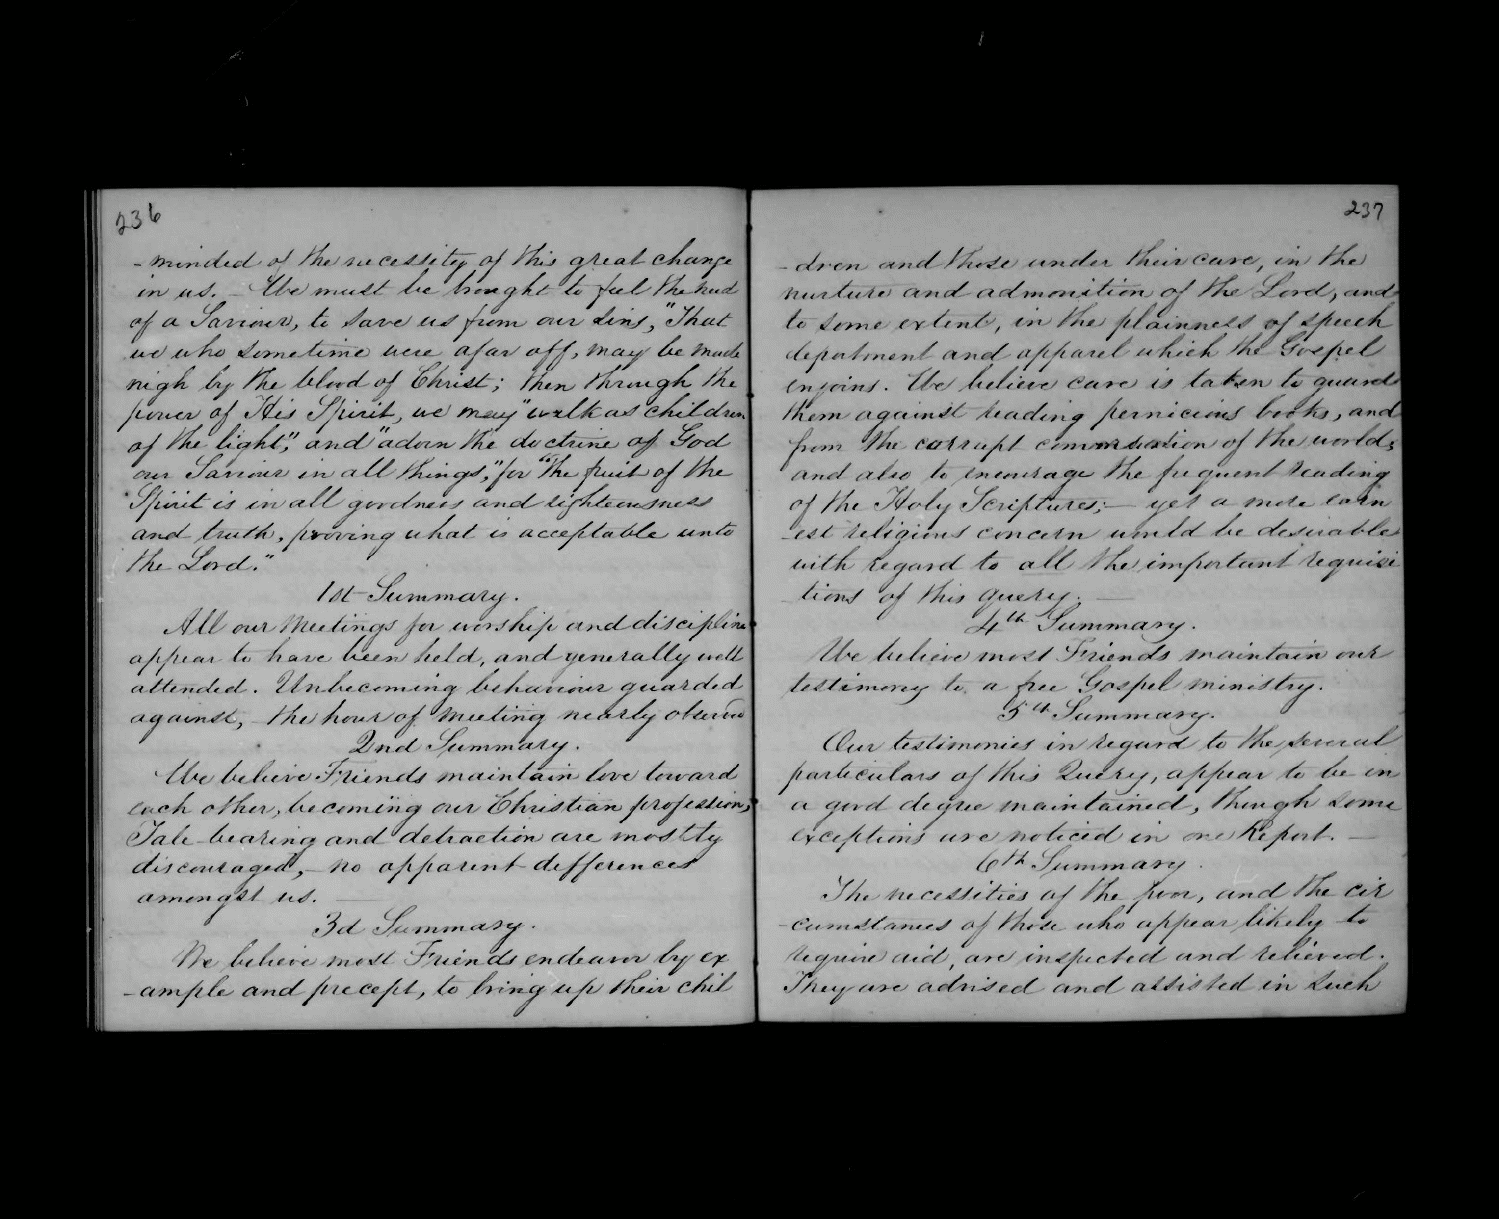 236
- minded of the necessity of this great change
in us. - We must be brought to feel the need
of a Saviour, to save us from our sins, "That
we who sometime were afar off, may be made
nigh by the blood of Christ; then through the
power of His Spirit, we may "walk as children
of the light," and "adorn the doctrine of God
our Saviour in all things," for "The fruit of the
Spirit is in all goodness and righteousness
and truth, proving what is acceptable unto
the Lord."
1st Summary.
All our Meetings for worship and discipline
appear to have been held, and generally well
attended. Unbecoming behaviour guarded
against, - the hour of meeting nearly observed
2nd Summary.
We believe Friends maintain love toward
each other, becoming our Christian profession,
Tale-bearing and detraction are mostly
discouraged, - no apparent differences
amongst us. —
3d Summary.
We believe most Friends endeavor by ex
- ample and precept, to bring up their chil
237
- dren and those under their care, in the
nurture and admonition of the Lord, and
to some extent, in the plainness of speech
deportment and apparel which the Gospel
enjoins. We believe care is taken to guard
them against reading pernicious books, and
from the corrupt conversation of the world;
and also to encourage the frequent reading
of the Holy Scriptures; — yet a more earn
- est religious concern would be desirable
with regard to all the important requisi
- tions of this query. —
4th Summary.
We believe most Friends maintain our
testimony to a free Gospel ministry.
5th Summary.
Our testimonies in regard to the several
particulars of this Query, appear to be in
a good degree maintained, though some
exceptions are noticed in one Report. —
6th Summary.
The necessities of the poor, and the cir
- cumstances of those who appear likely to
require aid, are inspected and relieved.
They are advised and assisted in such